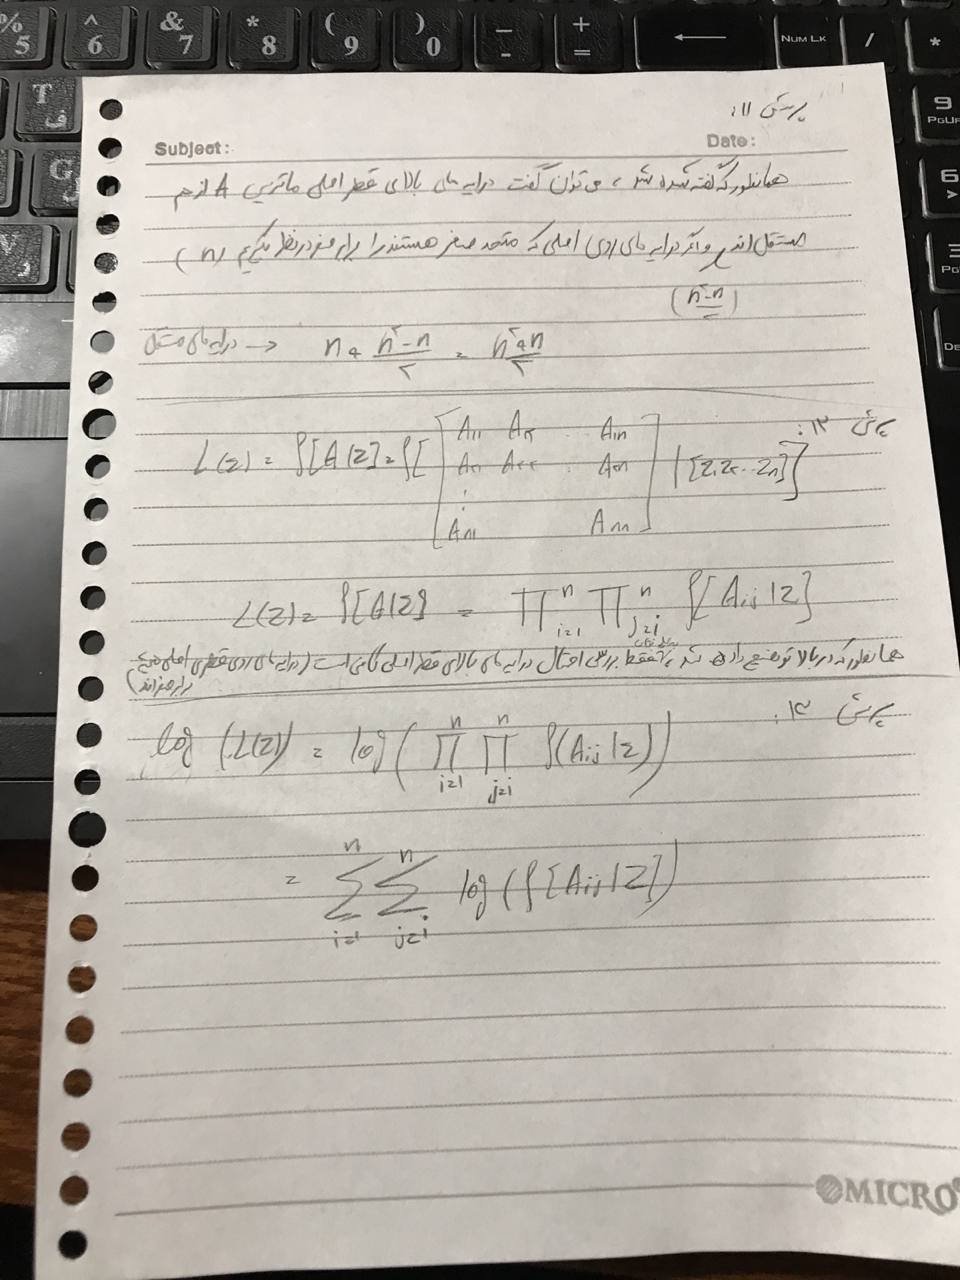 % 5
^ 6
& 7
* 8
( 9
) 0
_ -
+ =
Num Lk
/
*
T ف
G
9 PgUp
6 >
پرسش ۱۱:
Subject:
Date:
همانطور که گفته شده شد ، می توان گفت درایه های بالای قطر اصلی ماتریس A از هم
مستقل اند و اگر درایه های روی اصلی که متحد صفر هستند را برابر صفر در نظر بگیریم (n)
(n²-n / ۲)
درایه های مستقل → n + n²-n / ۲ = n²+n / ۲
پرسش ۱۲:
L(z) = P[A|z] = P[ [A₁₁ A₁₂ ... A₁n
A₂₁ A₂₂ ... A₂n
⋮
An₁ Ann] | [z₁ z₂ ... zn] ]
L(z) = P[A|z] = ∏ⁿᵢ₌₁ ∏ⁿⱼ₌ᵢ P[Aᵢⱼ|z]
همانطور که در بالا توضیح داده شد ، فقط بررسی احتمال درایه های بالای قطر اصلی کافی است (درایه های روی قطر اصلی همگی
برابر صفر اند)
پرسش ۱۳:
log (L(z)) = log( ∏ⁿᵢ₌₁ ∏ⁿⱼ₌ᵢ P(Aᵢⱼ|z) )
= ∑ⁿᵢ₌₁ ∑ⁿⱼ₌ᵢ log (P[Aᵢⱼ|z])
MICRO